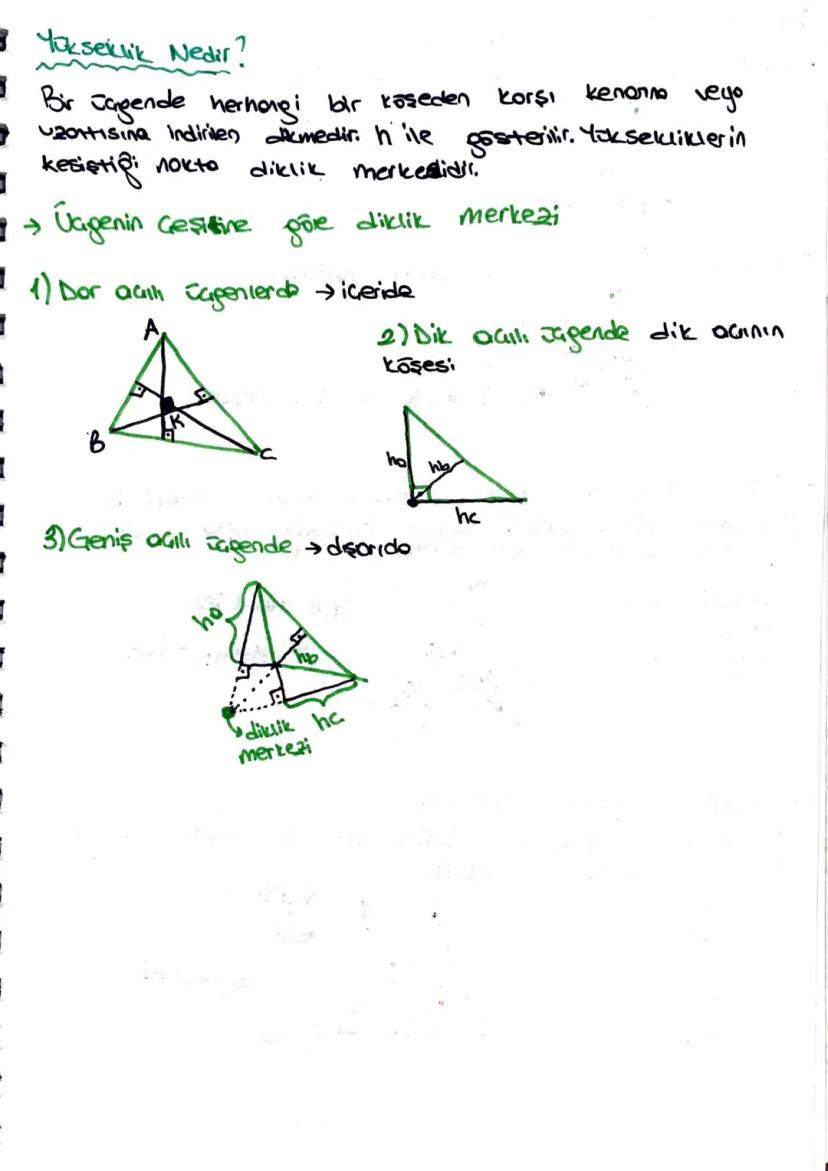 Yükseklik Nedir?
Bir üçgende herhangi bir köşeden karşı kenarına veya
uzantısına indirilen dikmedir. h ile gösterilir. Yüksekliklerin
kesiştiği nokta diklik merkezidir.
→ Üçgenin çeşitine göre diklik merkezi
1) Dar açılı üçgenlerde → içeride
2) Dik açılı üçgende dik açının
köşesi
A
B
K
C
ha
hb
hc
3) Geniş açılı üçgende → dışarıda
ha
hb
hc
diklik
merkezi